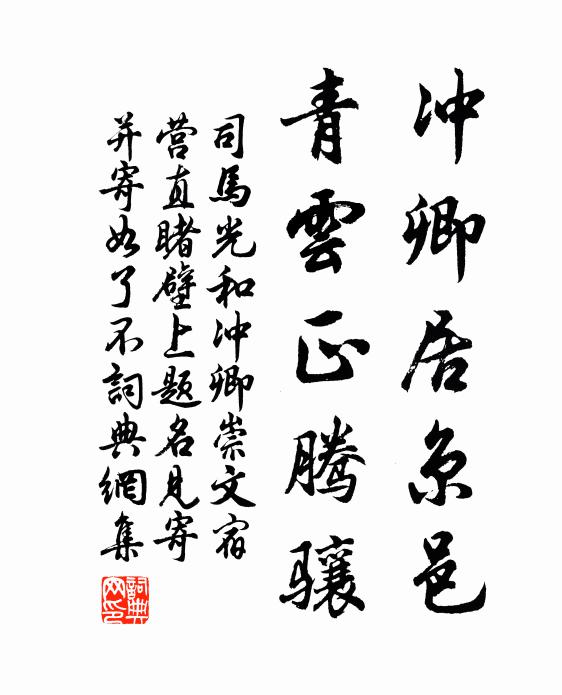 冲卿居京邑
青雲正腾骧
司馬光和冲卿崇文宿
营直睹壁上题名见寄
并寄如了不詞典網集
詞典
网印